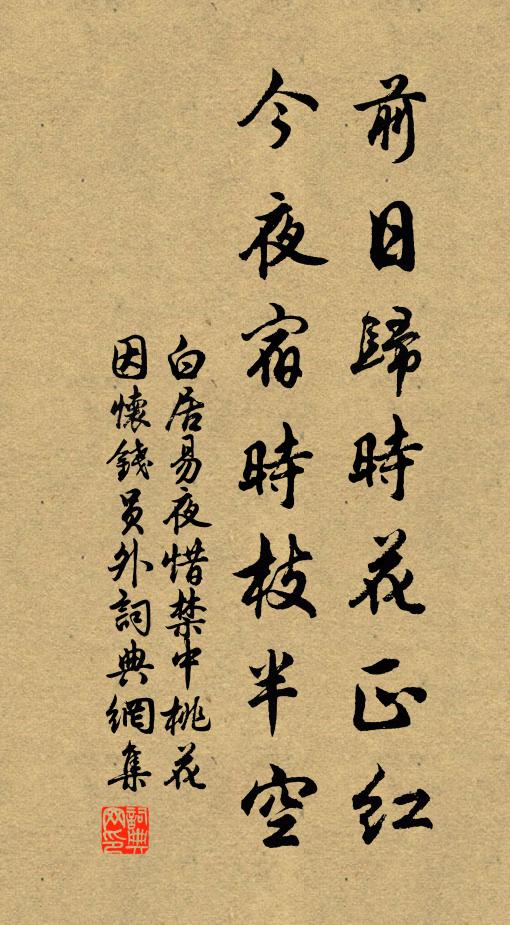 前日歸時花正紅
今夜宿時枝半空
白居易夜惜禁中桃花
因懷錢員外詞典網集
詞典
网印